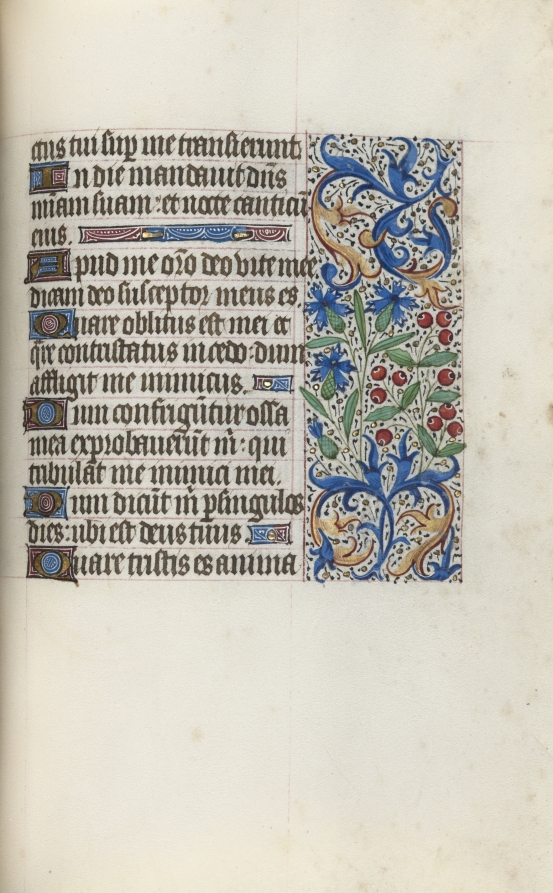 ctus tui sup me transierunt.
In die mandauit dñs
mĩam suam: et nocte canticũ
eius.
Apud me orõ deo vite mee
dicam deo susceptor meus es.
Quare oblitus est mei et
qre contristatus incedo: dum
affligit me inimicus.
Dum confrigũtur ossa
mea exprobauerũt m̃: qui
tribulãt me inimici mei.
Dum dicũt m̃ p singulos
dies: ubi est deus tuus.
Quare tristis es anima